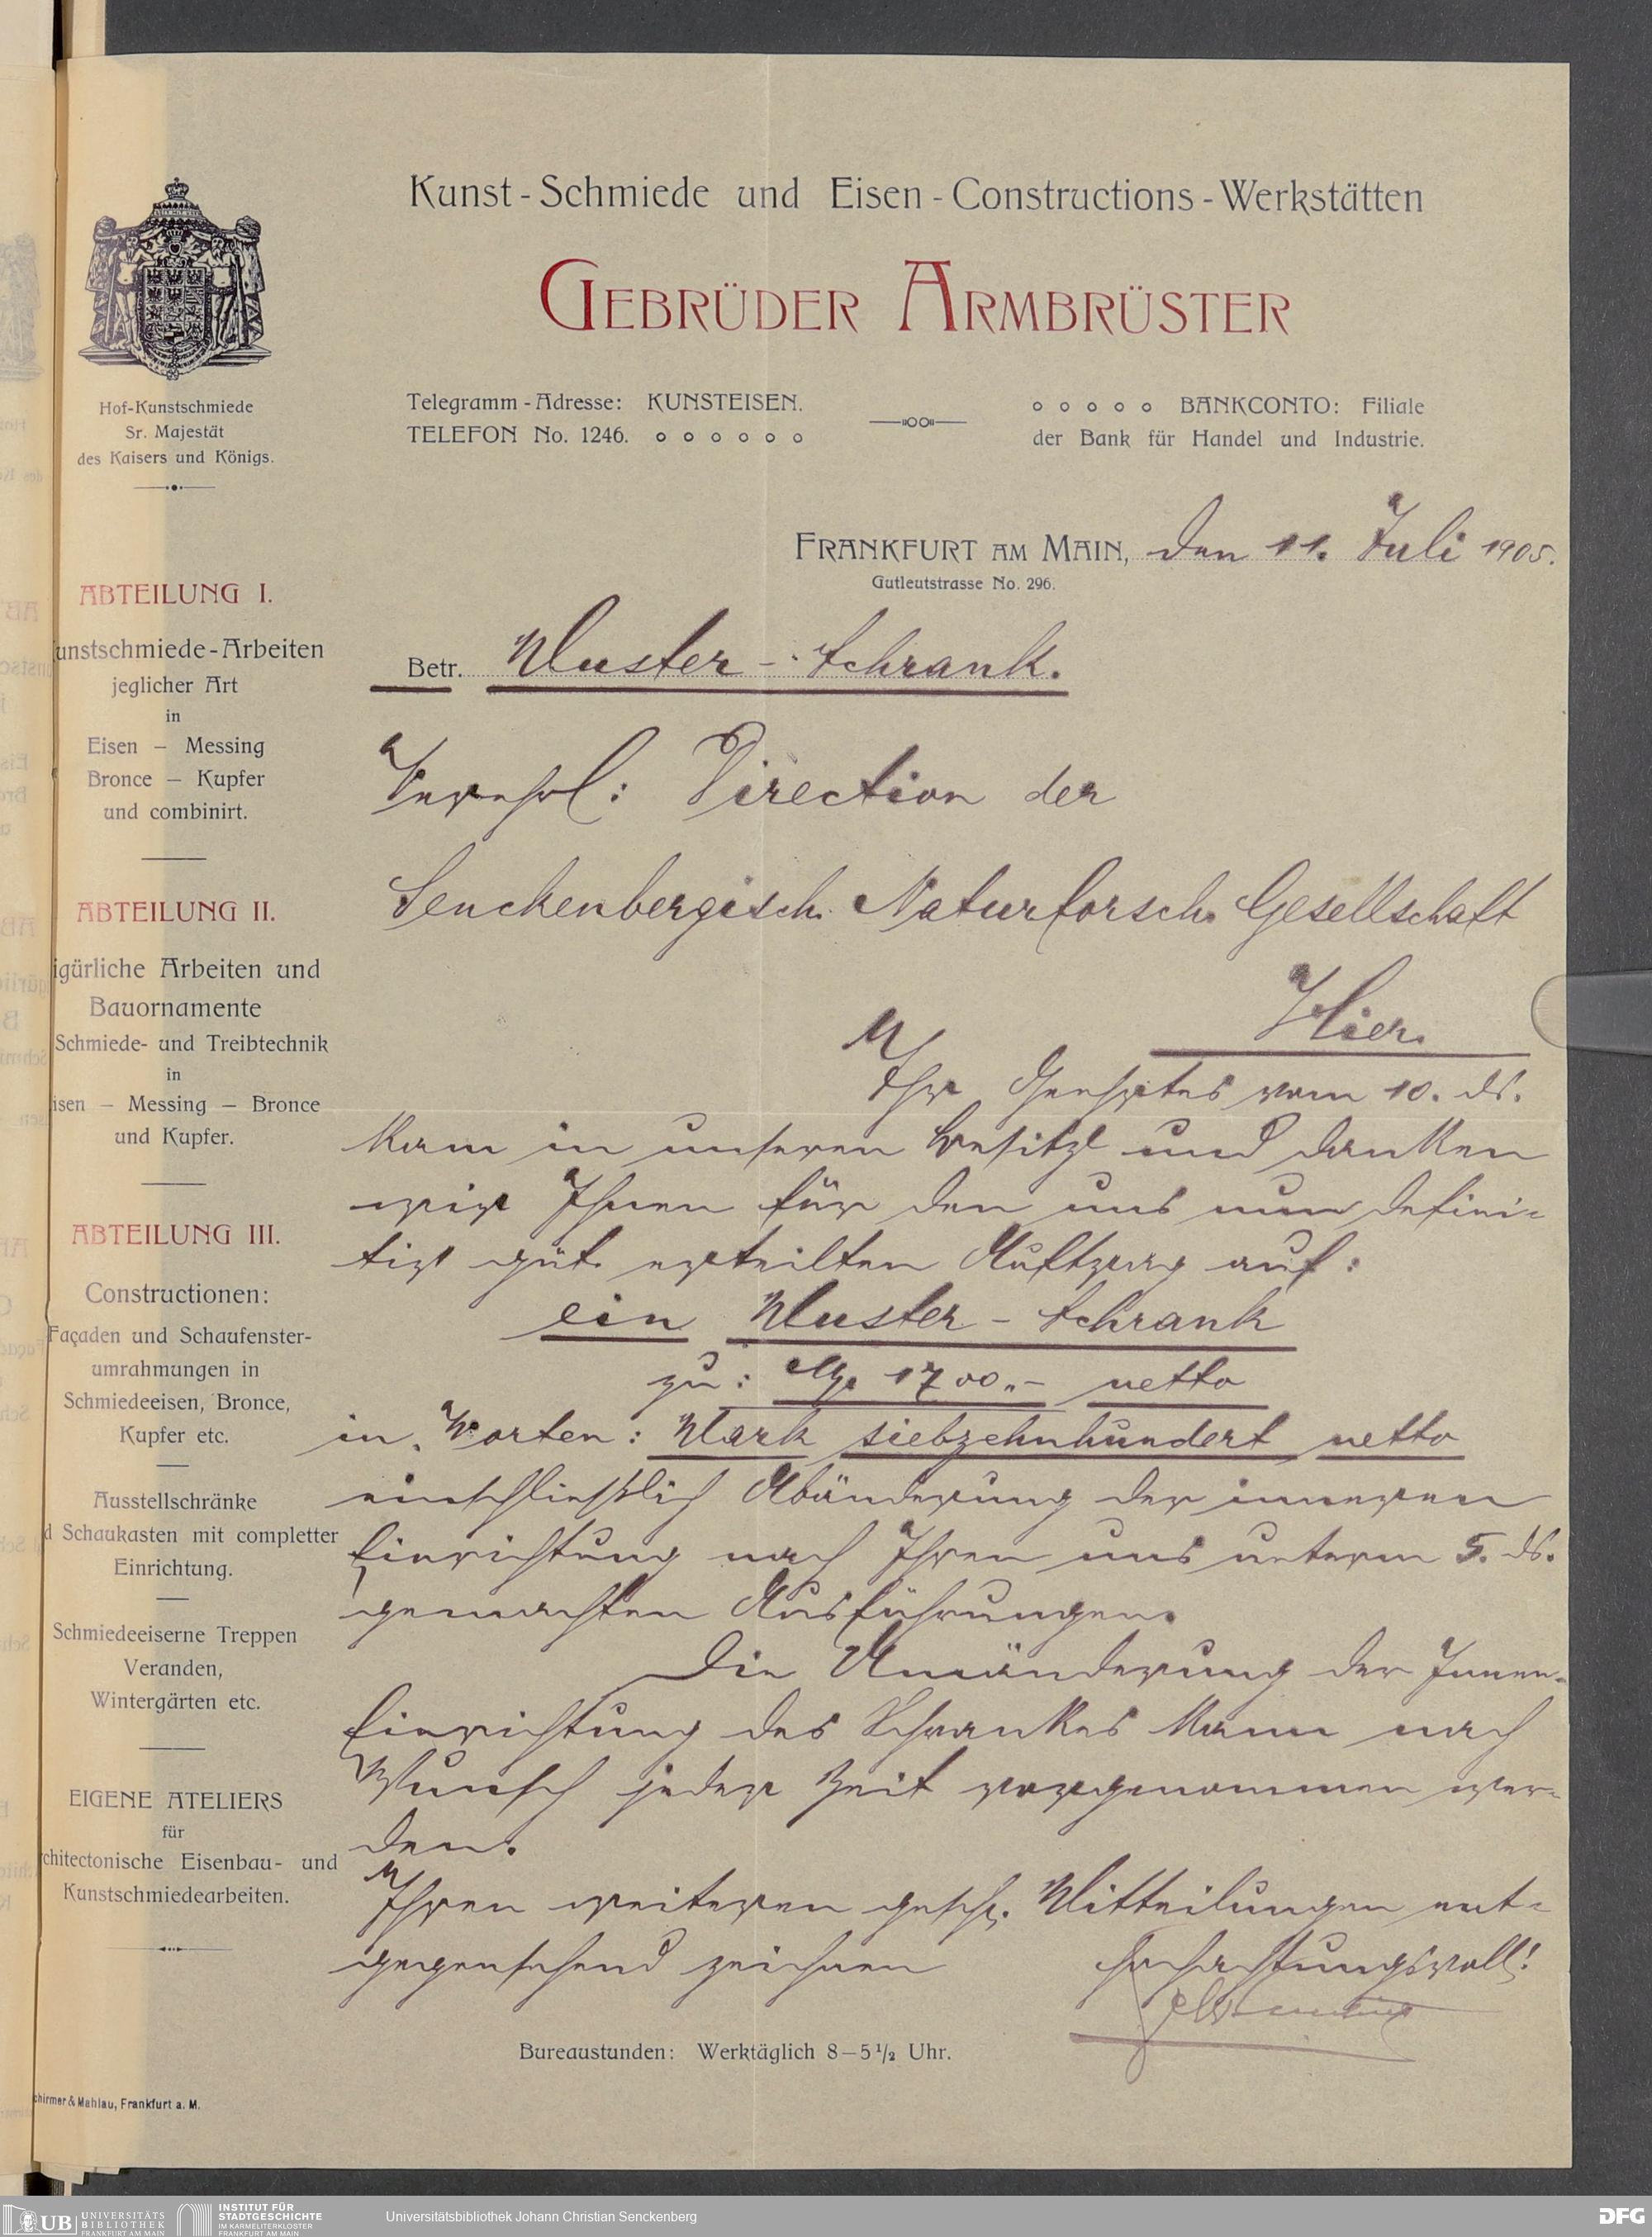 Kunst-Schmiede und Eisen-Constructions-Werkstätten
GEBRÜDER ARMBRÜSTER
Telegramm-Adresse: KUNSTEISEN.
TELEFON No. 1246.
BANKCONTO: Filiale
der Bank für Handel und Industrie.
Hof-Kunstschmiede
Sr. Majestät
des Kaisers und Königs.
FRANKFURT AM MAIN, den 11. Juli 1905.
Gutleutstrasse No. 296.
ABTEILUNG I.
unstschmiede-Arbeiten
jeglicher Art
in
Eisen – Messing
Bronce – Kupfer
und combinirt.
ABTEILUNG II.
igürliche Arbeiten und
Bauornamente
Schmiede- und Treibtechnik
in
isen – Messing – Bronce
und Kupfer.
ABTEILUNG III.
Constructionen:
Façaden und Schaufenster-
umrahmungen in
Schmiedeeisen, Bronce,
Kupfer etc.
Ausstellschränke
d Schaukasten mit completter
Einrichtung.
Schmiedeeiserne Treppen
Veranden,
Wintergärten etc.
EIGENE ATELIERS
für
chitectonische Eisenbau- und
Kunstschmiedearbeiten.
Betr. Muster-Schrank.
Verehrl: Direction der
Senckenbergisch. Naturforsch. Gesellschaft
Hier.
Ihr Geehrtes vom 10. ds.
kam in unseren Besitz und danken
wir Ihnen für den uns nun defini-
tiv güt. erteilten Auftrag auf:
ein Muster-Schrank
zu: M. 1700.- netto
in Worten: Mark siebzehnhundert netto
einschließlich Abänderung der inneren
Einrichtung nach Ihren uns unterm 5. ds.
gemachten Ausführungen.
Die Umänderung der Innen-
Einrichtung des Schrankes kann nach
Wunsch jeder Zeit vorgenommen wer-
den.
Ihren weiteren gesch. Mitteilungen ent-
gegensehend zeichnen
Hochachtungsvoll!
Bureaustunden: Werktäglich 8–5½ Uhr.
chirmer & Mahlau, Frankfurt a. M.
UB UNIVERSITÄTS
BIBLIOTHEK
FRANKFURT AM MAIN
INSTITUT FÜR
STADTGESCHICHTE
IM KARMELITERKLOSTER
FRANKFURT AM MAIN
Universitätsbibliothek Johann Christian Senckenberg
DFG